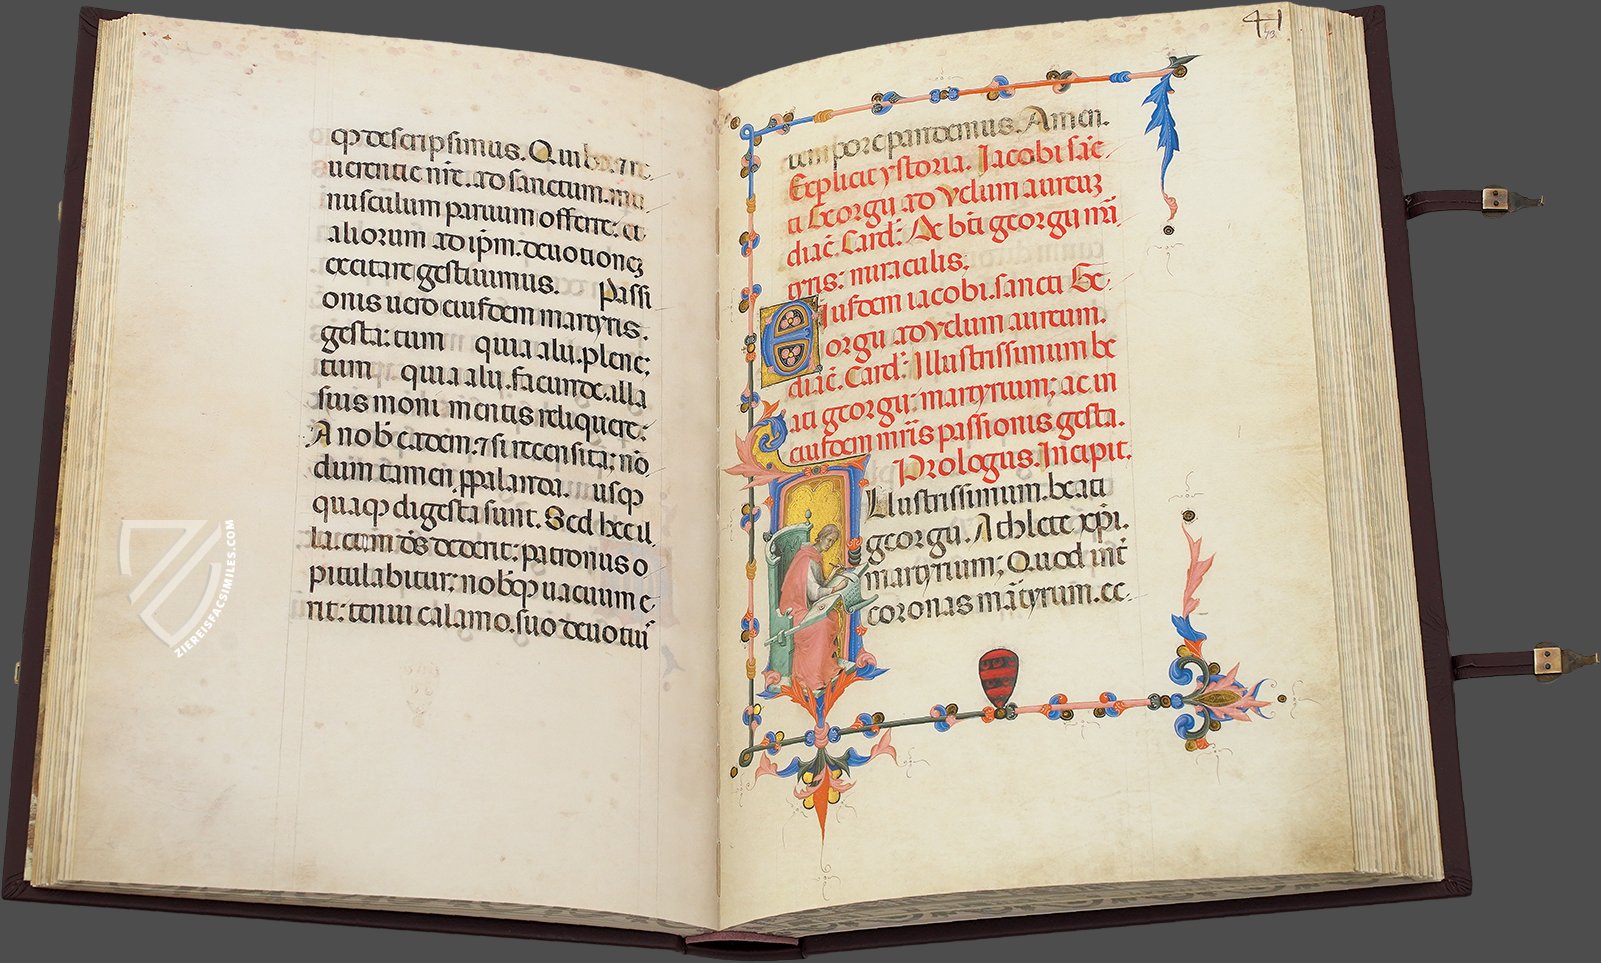 qꝫ descripsimus. Quibꝫ. ⁊ re
uerentie nr̄e. ad sanctum. mu
nusculum paruum offerre: et
aliorum ad ip̄m. deuotionē
excitare gestiuimus. Passi
onis uero eiusdem martyris.
gesta: cum quia alii. plene;
tum quia alii. facunde. alla
suis moni mentis reliquere:
A nob̄ eadem. ⁊ si recensita; nō
dum tamen. ꝓpalanda. usqꝫ
quaqꝫ digesta sunt. Sed hec il
la. cum ds̄ dederit: patronus o
pitulabitur; nobqꝫ uacuum e
rit: tenui calamo. suo deuotiu
41
73.
tempore pandemus. Amen.
Explicit ystoria. Jacobi sāc
ti Georgii ad Velum aureuꝫ
diac̄. Card̄: De bt̄i georgii mr̄
tyris: miraculis.
Eiusdem iacobi. sancti Ge
orgii ad Velum aureum.
diac̄. Card̄: Illustrissimum be
ati georgii: martyrium; ac in
eiusdem mr̄is passionis gesta.
Prologus. Incipit.
Illustrissimum. beati
georgii. Athlete xp̄i.
martyrium; Quod int̄
coronas mār̄tyrum. ec
ZIEREISFACSIMILES.COM